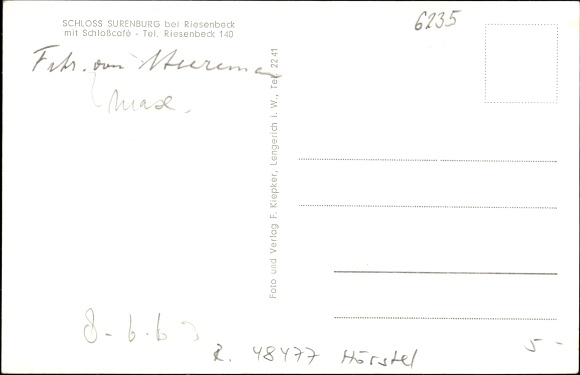 SCHLOSS SURENBURG bei Riesenbeck
mit Schloßcafé - Tel. Riesenbeck 140
6235
Frhr. von
Max.
Foto und Verlag F. Kiepker, Lengerich i. W., Tel. 22 41
8-6-6
48477 Hörstel
5 -